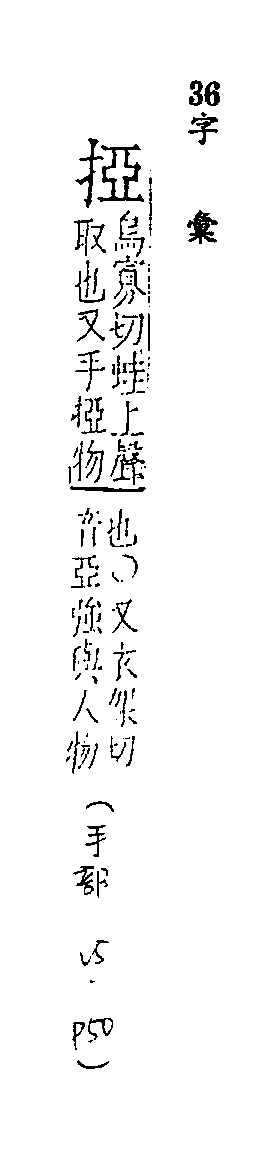 36
字彙
掗
烏寡切蛙上聲
取也又手掗物
也○又衣架切
音亞強與人物
(手部 v5.p50)